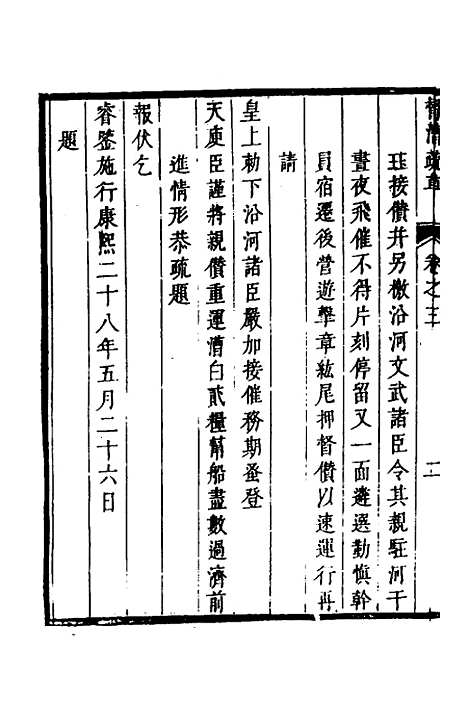 督漕疏草
卷之三
二
玨接儹并另檄沿河文武諸臣令其親駐河干
晝夜飛催不得片刻停留又一面遴選勤慎幹
員宿遷後營遊擊章紘尾押督儹以速運行再
請
皇上勅下沿河諸臣嚴加接催務期蚤登
天庾臣謹將親儹重運漕白貳糧幫船盡數過濟前
進情形恭疏題
報伏乞
睿鑒施行康熙二十八年五月二十六日
題